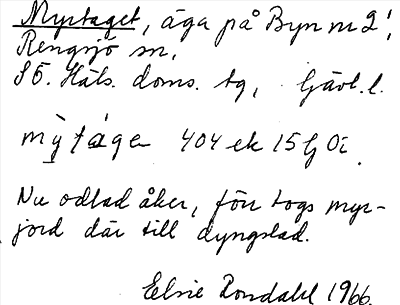 Myrtaget, äga på Byn nr 2,
Rengsjö sn,
SÖ. Häls. doms. tg, Gävl. l.
mỳtágen 404 ek 15 G Öi.
Nu odlad åker, förr togs myr-
jord där till dyngstad.
Elsie Rondahl 1966.